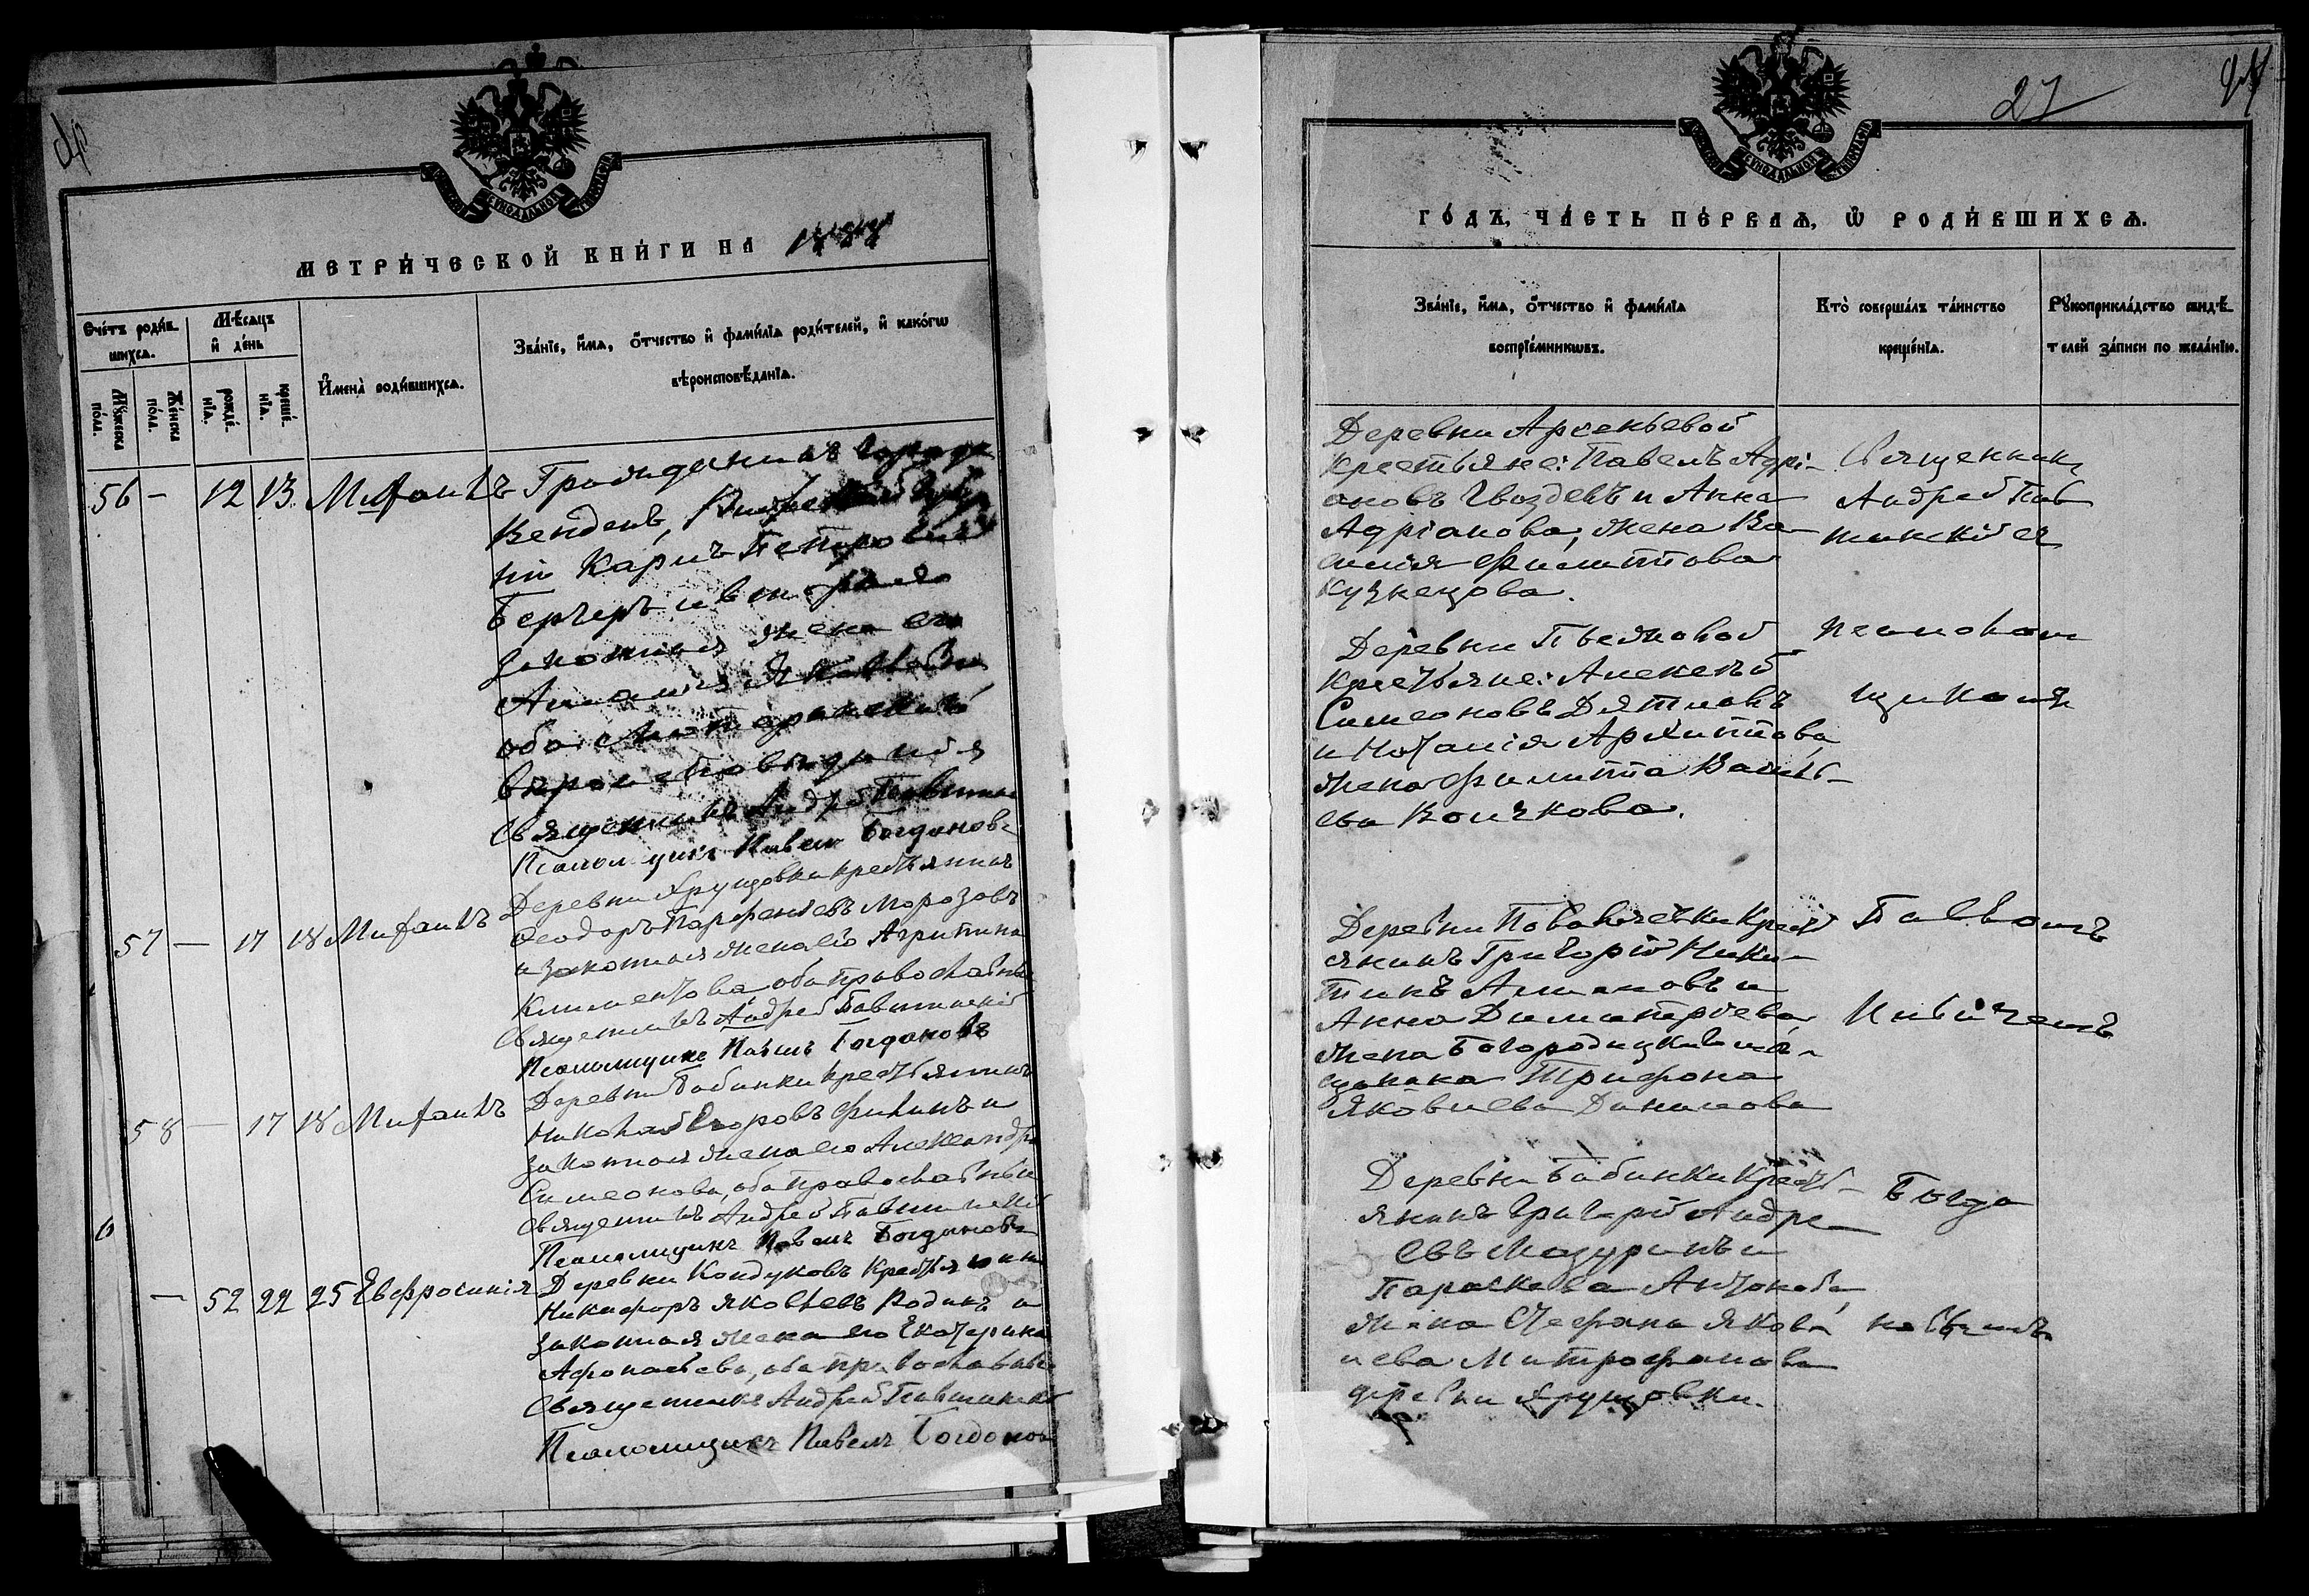 МЕТРИЧЕСКОЙ КНИГИ НА 1888
Счетъ родив-
шихся.
Мѣсяцъ
и день
Имена родившихся.
Званіе, имя, отчество и фамилія родителей, и какогω
вѣроисповѣданія.
Мужеска
пола.
Женска
пола.
рожде-
нія.
креще-
нія.
56 - 12 13 Михаилъ
Гражданинъ города
Венденъ,
Карлъ Петровъ
Бергеръ и вторая
законная жена его
Амалія
оба Лютеранскаго
вѣроисповѣданія
Священникъ Андрей Павшинскій
Псаломщикъ Павелъ Богдановъ
57 - 17 18 Михаилъ
Деревни Хрущовки крестьянинъ
Ѳеодоръ Парфеньевъ Морозовъ
и законная жена его Агрипина
Климентова оба православные
Священникъ Андрей Павшинскій
Псаломщикъ Павелъ Богдановъ
58 - 17 18 Михаилъ
Деревни Бабинки крестьянинъ
Николай Егоровъ Филинъ и
законная жена его Александра
Симеонова, оба православные
Священникъ Андрей Павшинскій
Псаломщикъ Павелъ Богдановъ
- 52 22 25 Евфросинія
Деревни Кондуковъ крестьянинъ
Никифоръ Яковлевъ Родинъ и
законная жена его Екатерина
Афонасьева, оба православные
Священникъ Андрей Павшинскій
Псаломщикъ Павелъ Богдановъ
27
ГОДЪ, ЧАСТЬ ПЕРВАЯ, Ѡ РОДИВШИХСЯ.
Званіе, имя, отчество и фамилія
воспріемниковъ.
Кто совершалъ таинство
крещенія.
Рукоприкладство свидѣ-
телей записи по желанію.
Деревни Арсеньевой
крестьяне: Павелъ Адрі-
ановъ Гвоздевъ и Анна
Адріанова, жена Ва-
силія Филиппова
Кузнецова.
Священникъ
Андрей Пав
шинскій съ
Деревни Пьяновой
крестьяне: Алексѣй
Симеоновъ Дятловъ
и Наталія Архиппова,
жена Филиппа Василь-
ева Волчкова.
псаломъ
щикомъ
Деревни Поваличейки крест
янинъ Григорій Ники-
тинъ Алимовъ и
Анна Димитріева,
жена Богородицкаго мѣ-
щанина Трифона
Яковлева Данилова
Павломъ
Ивановичемъ
Деревни Бабинки крестъ-
янинъ Григорій Андре-
евъ Мазуринъ и
Параскева Антонова,
жена Стефана Яков-
лева Митрофанова
деревни Хрущовки.
Богда
новымъ